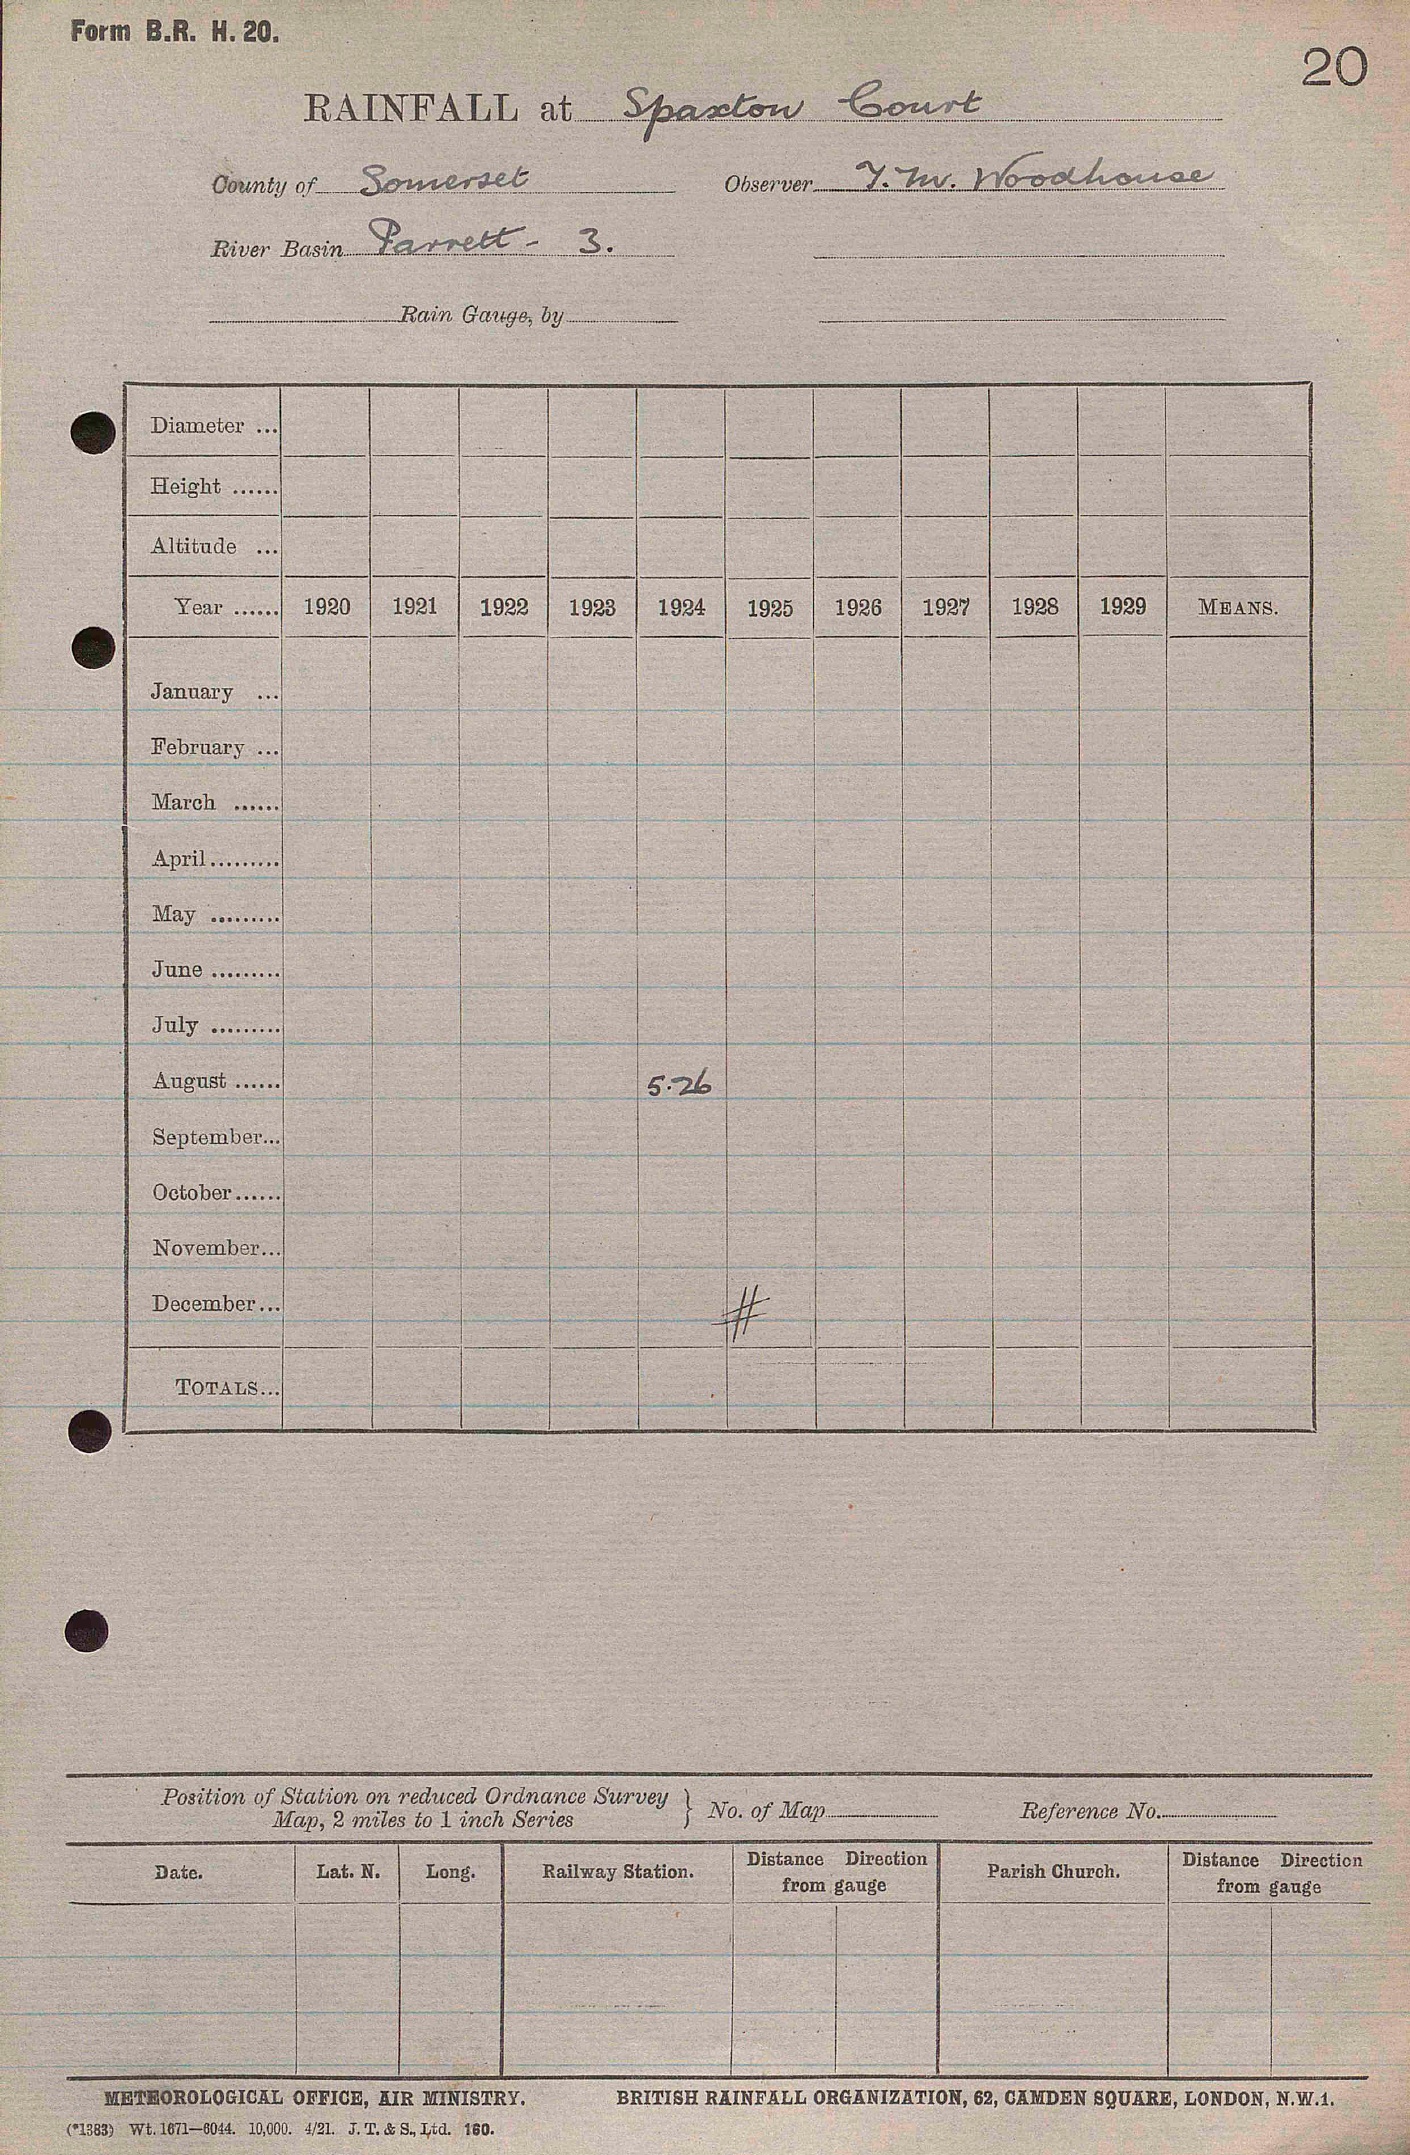 Form B.R. H. 20.
20
RAINFALL at Spaxton Court
County of Somerset Observer Y. M. Woodhouse
River Basin Parrett - 3.
Rain Gauge, by
Diameter ...
Height ......
Altitude ...
Year ...... 1920 1921 1922 1923 1924 1925 1926 1927 1928 1929 MEANS.
January ...
February ...
March ......
April.........
May .........
June .........
July .........
August ...... 5.26
September...
October......
November...
December... #
TOTALS...
Position of Station on reduced Ordnance Survey
Map, 2 miles to 1 inch Series } No. of Map Reference No.
Date. Lat. N. Long. Railway Station. Distance Direction from gauge Parish Church. Distance Direction from gauge
METEOROLOGICAL OFFICE, AIR MINISTRY. BRITISH RAINFALL ORGANIZATION, 62, CAMDEN SQUARE, LONDON, N.W.1.
(*1383) Wt. 1671—6044. 10,000. 4/21. J. T. & S., Ltd. 160.